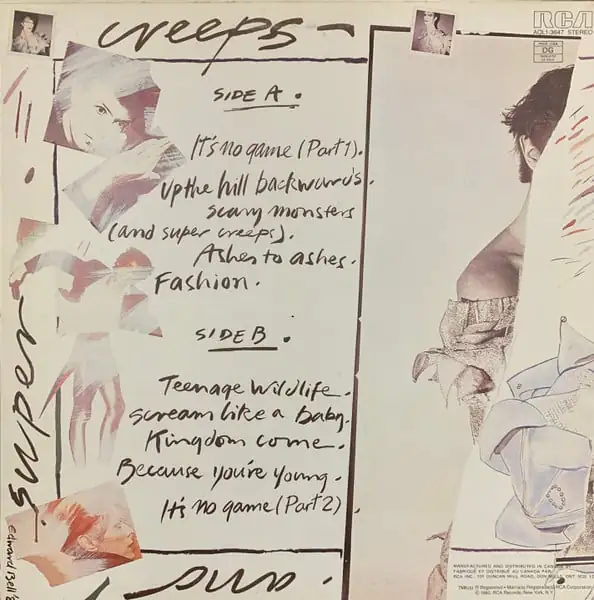 creeps
RCA
ACL1-3647 STEREO
DG
SIDE A.
It's no game (Part 1).
Up the hill backwards.
scary monsters
(and super creeps).
Ashes to ashes.
Fashion.
SIDE B.
Teenage Wildlife.
Scream like a Baby.
Kingdom come.
Because you're young.
It's no game (Part 2)
super
and
Edward Bell's
MANUFACTURED AND DISTRIBUTED IN CANADA BY
FABRIQUÉ ET DISTRIBUÉ AU CANADA PAR
RCA INC. 101 DUNCAN MILL ROAD, DON MILLS, ONT.
© 1980, RCA Records, New York, N.Y.